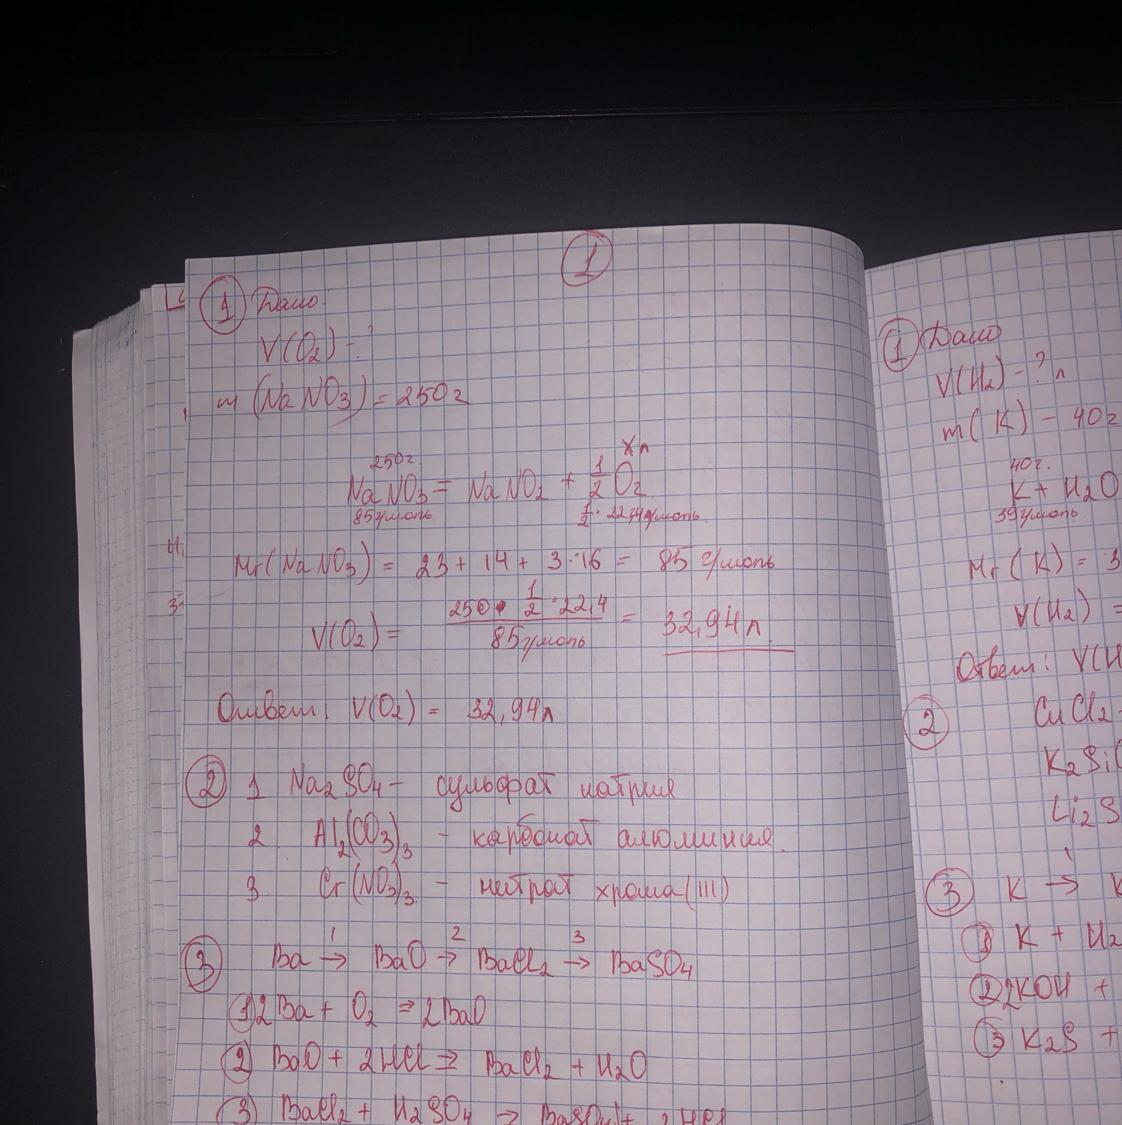 1
① Дано:
V(O₂) - ?
m (NaNO₃) = 250г
250г. Xл
NaNO₃ = NaNO₂ + 1/2 O₂
85г/моль 1/2 · 22,4 г/моль.
Mr(NaNO₃) = 23 + 14 + 3·16 = 85 г/моль
V(O₂) = 250 · 1/2 · 22,4 / 85г/моль = 32,94л
Ответ: V(O₂) = 32,94л
② 1 Na₂SO₄ - сульфат натрия
2 Al₂(CO₃)₃ - карбонат алюминия.
3 Cr(NO₃)₃ - нитрат хрома(III)
1 2 3
③ Ba → BaO → BaCl₂ → BaSO₄
① 2Ba + O₂ → 2BaO
② BaO + 2HCl → BaCl₂ + H₂O
③ BaCl₂ + H₂SO₄ → BaSO₄↓ + 2HCl
① Дано
V(H₂) - ? л
m(K) - 40г
40г.
K + H₂O
39г/моль
Mr(K) = 3
V(H₂) =
Ответ: V(H
② CuCl₂ -
K₂Si
Li₂S
1
③ K → K
① K + H₂
② 2KOH +
③ K₂S +